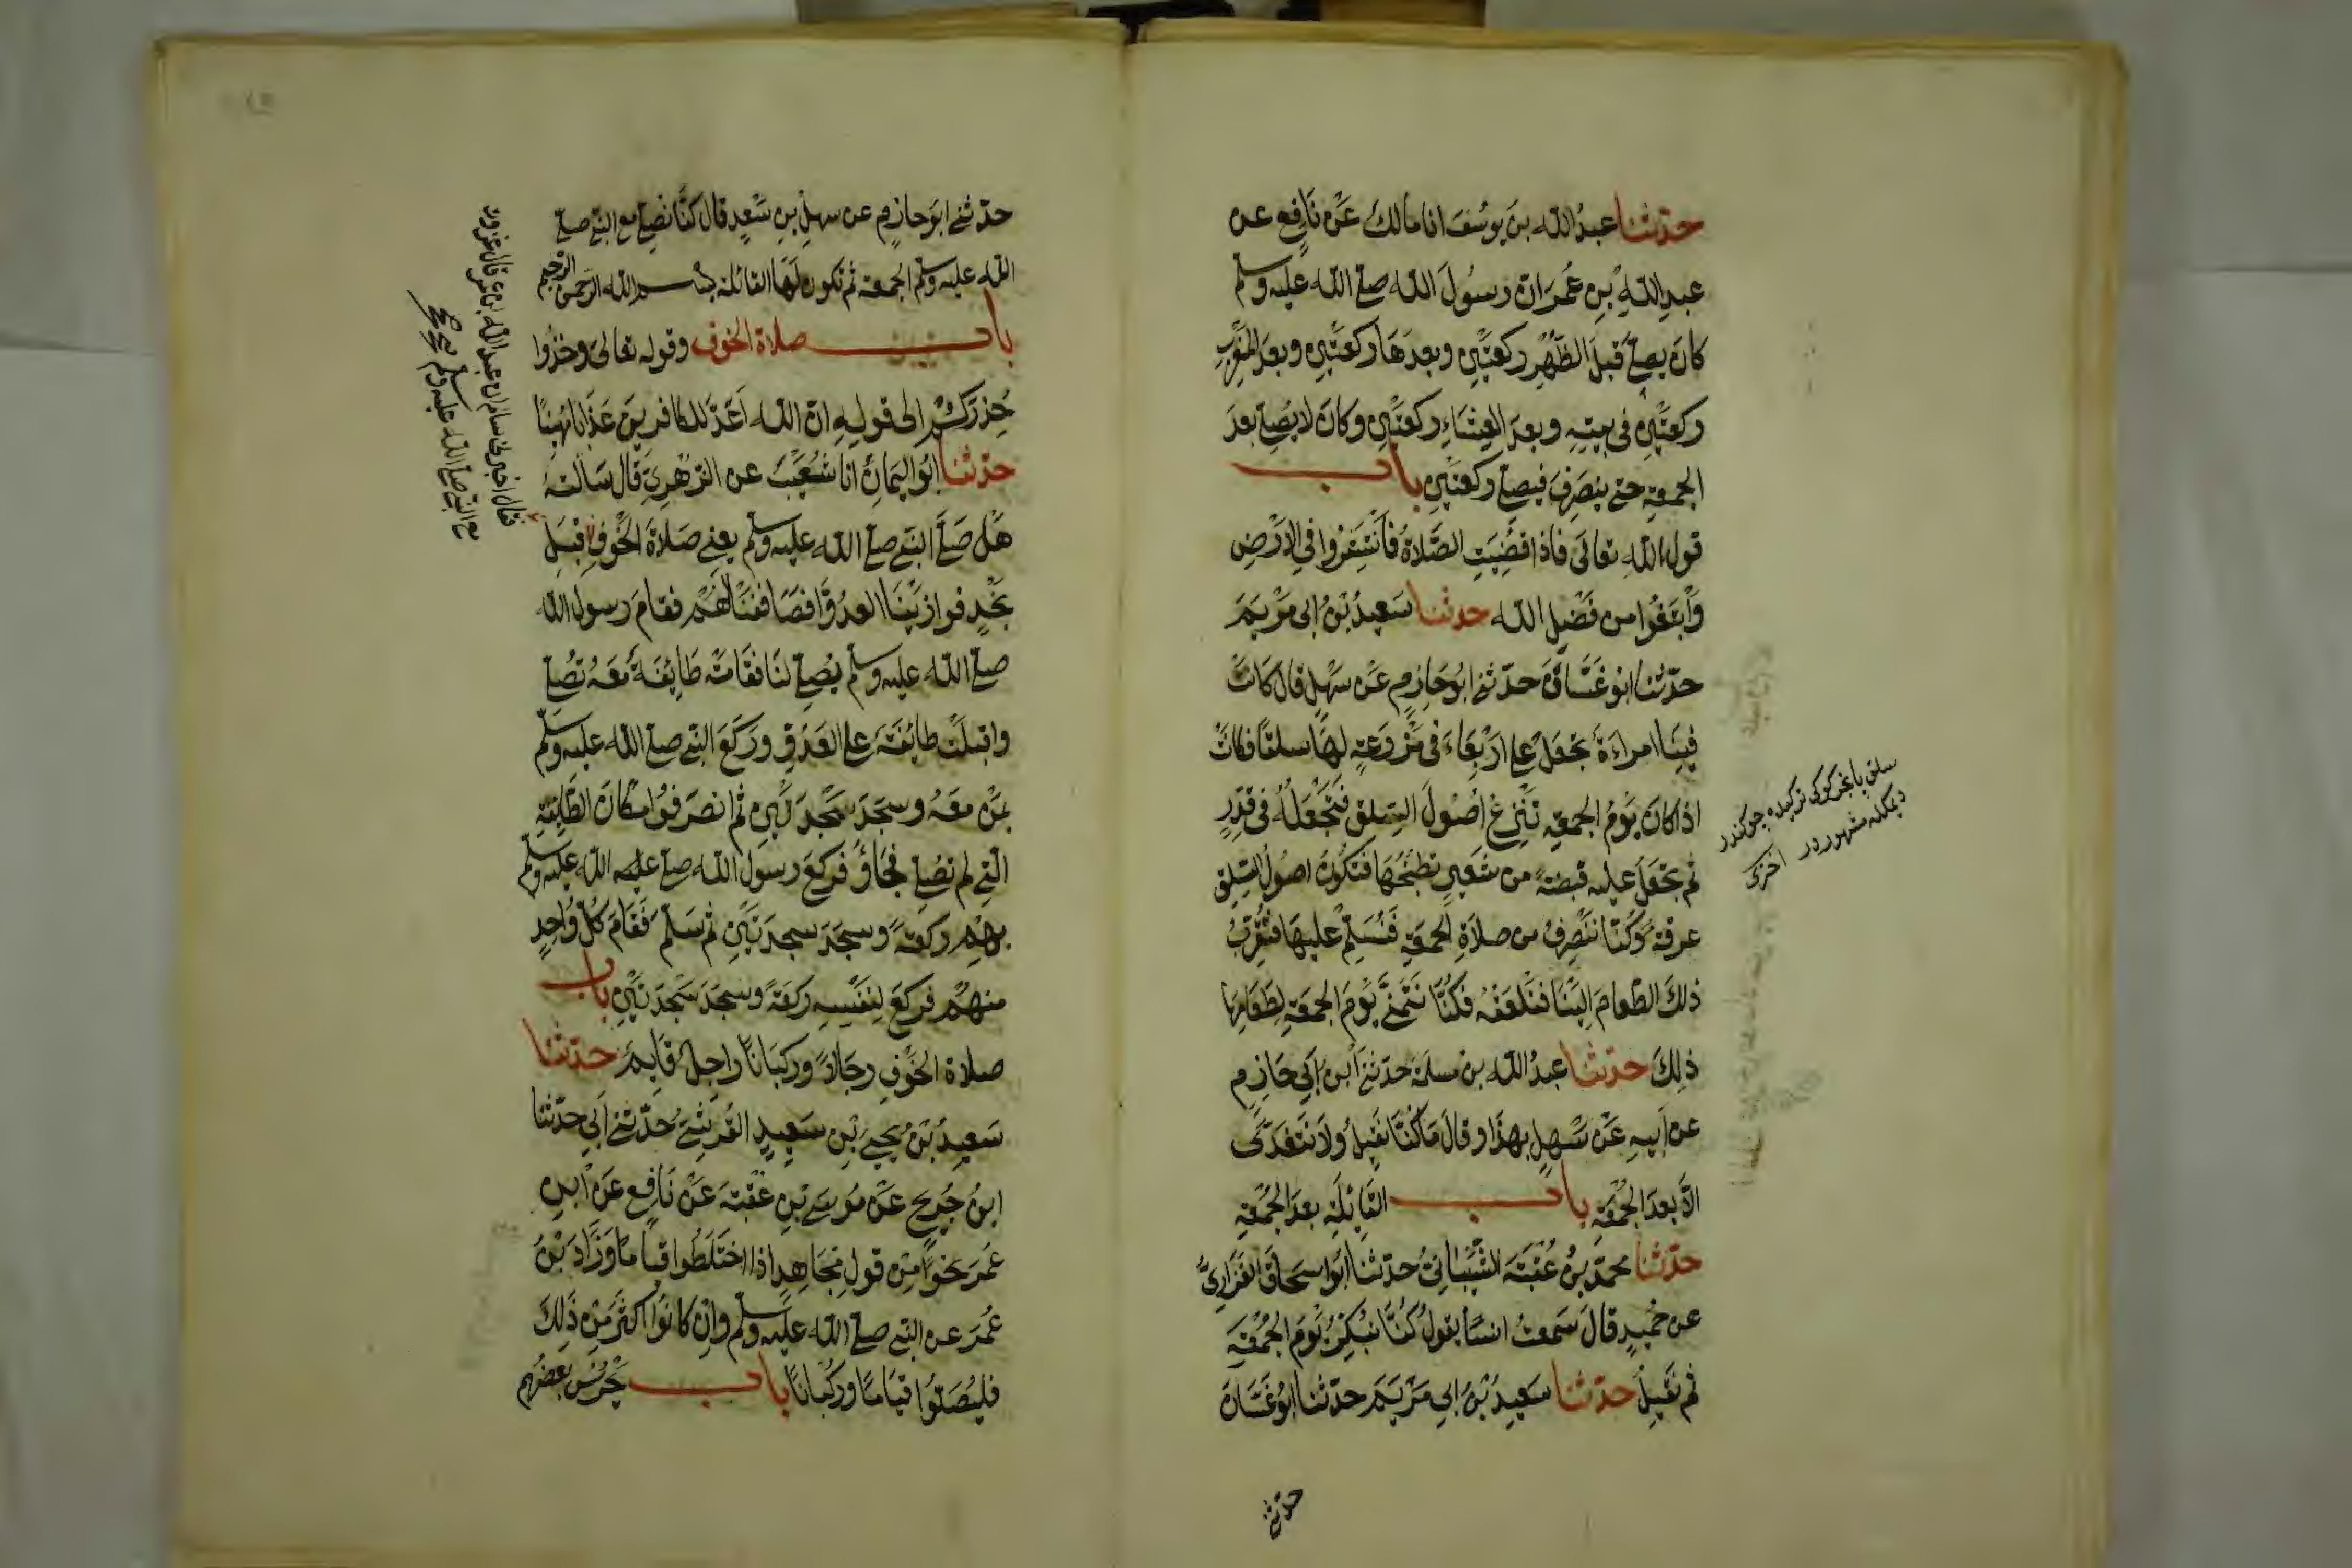 حدثنا عبدُ الله بن يوسُفَ انا مالك عَنْ نَافِع عن
عبدِ اللهِ بنِ عُمَرَ ان رسُولَ الله صلى الله عليه وسلم
كانَ يصلى قبلَ الظُّهْرِ ركعتَيْنِ وبعدَهَا ركعتَيْنِ وبعدَ المَغْرِبِ
ركعتَيْنِ فى بيتِهِ وبعدَ العِشَاءِ ركعتَيْنِ وكانَ لا يصَلى بعدَ
الجمعةِ حتى ينصَرِفَ فيصلى ركعتَيْنِ باب
قول الله تعالى فاذا قُضِيَتِ الصَّلاةُ فَانْتَشِرُوا فِي الارْضِ
وَابْتَغُوا من فَضْلِ الله حدثنا سَعِيدُ بْنُ ابى مَرْيَمَ
حدّثنا ابو غَسَّانَ حدّثنى ابُو حَازِمٍ عَنْ سَهْلٍ قال كانَتْ
فِينَا امراءَةٌ تجْعَلُ على ارْبِعَاءَ فى مَزْرَعَةٍ لهَا سلقًا فكانَتْ
اذا كانَ يَوْمُ الجمعةِ تَنْزِعُ أصُولَ السِّلقِ فَتَجْعَلُهُ فى قِدْرٍ
ثم تجْعَلُ عليه قبضَةً من شعِيرٍ تطْبُخُهَا فتَكُونُ اصُولُ السّلقِ
عرقهُ وكُنَّا ننْصَرِفُ من صلاةِ الجمعَةِ فَنُسَلِّمُ عليهَا فَتُقَرِّبُ
ذلكَ الطّعامَ اليْنَا فنَلْعَقُهُ فكُنَّا نَتَمَنَّى يَوْمَ الجمعَةِ لِطَعَامِهَا
ذلِكَ حدثنا عبدُ الله بن مسلمة حدثنى ابن ابى حَازِمٍ
عن ابِيهِ عَنْ سَهلٍ بهذَا وقالَ مَا كُنَّا نَقِيلُ ولا نَتَغَدَّى
الّا بعدَ الجُمْعَةِ باب القَائِلَةِ بعدَ الجُمْعَةِ
حدّثنا محمدُ بنُ عُقْبَةَ الشَّيْبَانِىُّ حدّثنا ابُو اسحَاقَ الفَزَارِىُّ
عن حُمَيْدٍ قالَ سَمعتُ انسًا يقولُ كُنَّا نبَكِّرُ يَوْمَ الجُمُعَةِ
ثم نَقِيلُ حدّثنا سَعِيدُ بْنُ ابى مَرْيَمَ حدّثنا ابُو غَسَّانَ
سلق يا
ديمكله مشهوردر اخترى
حدثنى
حدّثنى ابو حازمٍ عن سهلِ بنِ سَعدٍ قال كنَّا نصَلى مع النبى صلى
الله عليه وسلم الجمعةَ ثم تكون لَهَا القائلة بسم الله الرحمن الرحيم
باب صلاة الخوف وقوله تعالى وخُذُوا
حِذْرَكُمْ الى قولِهِ انّ اللهَ أعَدَّ للكافرِينَ عَذَابًا مُهِينًا
حدّثنا ابُو اليَمانِ انا شُعَيْبٌ عن الزهرِىِّ قَال سَألتهُ
هَلْ صَلَّى النبى صلى الله عليه وسلم يعنى صَلاةَ الخَوْفِ قِبَلَ
نَجْدٍ فوازَيْنَا العدُوَّ فصَافَفْنَا لَهُمْ فقامَ رسول الله
صلى الله عليه وسلم يُصَلِّى لنَا فقَامَتْ طَائِفَةٌ مَعَهُ تُصَلِّى
واقبلَتْ طائِفةٌ على العَدُوِّ ورَكَعَ النبى صلى الله عليه وسلم
بمَنْ معَهُ وسجَدَ سَجْدَتَيْنِ ثم انصَرَفُوا مكانَ الطّائِفةِ
الّتى لم تصَلِّ فجَاؤُ فركعَ رسول الله صلى عليه الله عليه وسلم
بهِمْ ركعَةً وسجَدَ سجدَتَيْنِ ثم سَلّمَ فَقَامَ كُلُّ وَاحِدٍ
منهُمْ فركَعَ لِنَفْسِهِ ركعَةً وسجَدَ سَجْدَتَيْنِ باب
صلاةِ الخَوْفِ رجَالًا وركبَانًا راجلٌ قَايمٌ حدّثنا
سَعِيدُ بْنُ يحيَى بْنِ سَعِيدٍ القُرَشِىُّ حَدّثنى أبِى حدّثنا
ابنُ جُرَيجٍ عَنْ مُوسَى بْنِ عُقْبَةَ عَنْ نَافِعٍ عَنْ ابنِ
عُمَرَ نحَوًا مِنْ قولِ مُجَاهِدٍ اذا اخْتَلَطُوا قِيَامًا وَزَادَ بْنُ
عُمَرَ عن النبى صلى الله عليه وسلم وانْ كانُوا اكثَرَ مِنْ ذَلِكَ
فليُصَلُّوا قِيَامًا ورُكْبَانًا باب يَحْرُسُ بعضُهم
فقال اخبرنى سالم ان عبد الله بن عمر قال غزوت
مع النبى صلى الله عليه وسلم صح